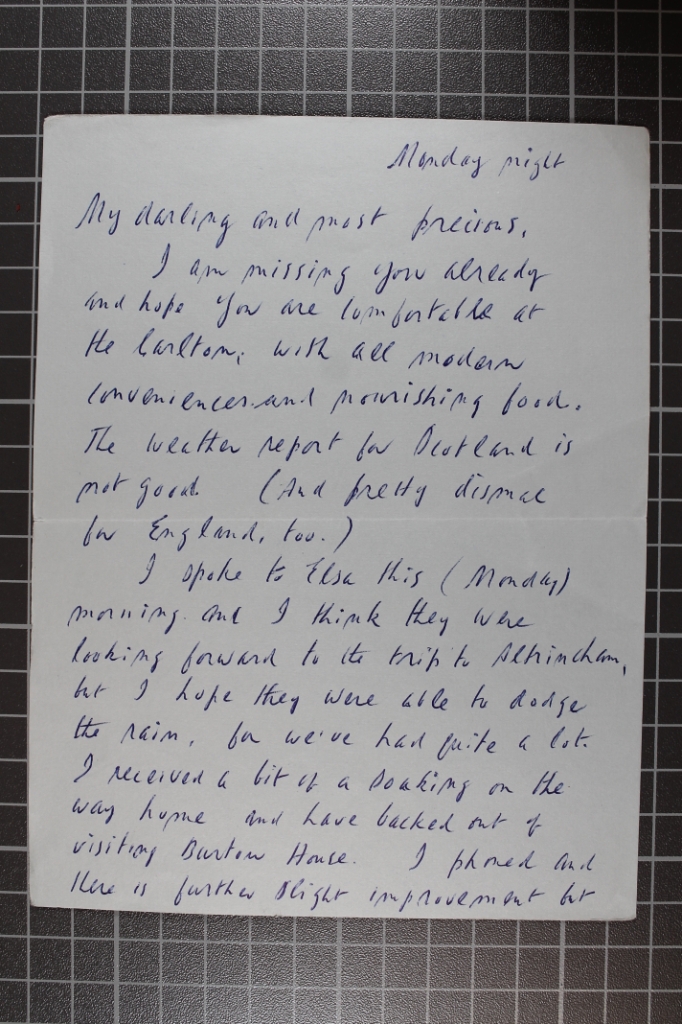 Monday night
My darling and most precious,
I am missing you already
and hope you are comfortable at
the Carlton, with all modern
conveniences and nourishing food.
The weather report for Scotland is
not good. (And pretty dismal
for England, too.)
I spoke to Elsa this (Monday)
morning and I think they were
looking forward to the trip to Altrincham,
but I hope they were able to dodge
the rain, for we've had quite a lot.
I received a bit of a soaking on the
way home and have backed out of
visiting Burton House. I phoned and
there is further slight improvement but